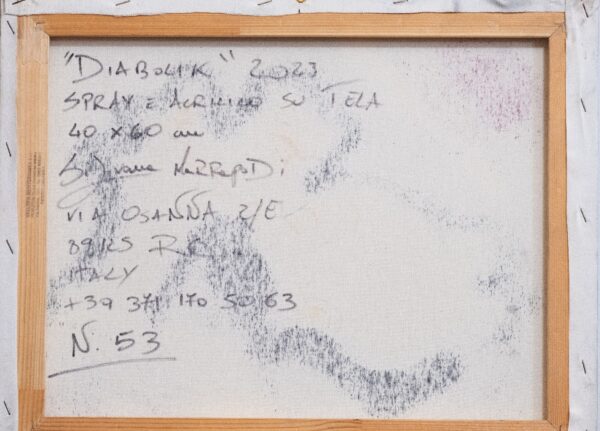 "DIABOLIK" 2023
SPRAY E ACRILICO SU TELA
40 x 60 cm
VIA OSANNA 2/E
89125 RC
ITALY
+39 371 170 50 63
N. 53